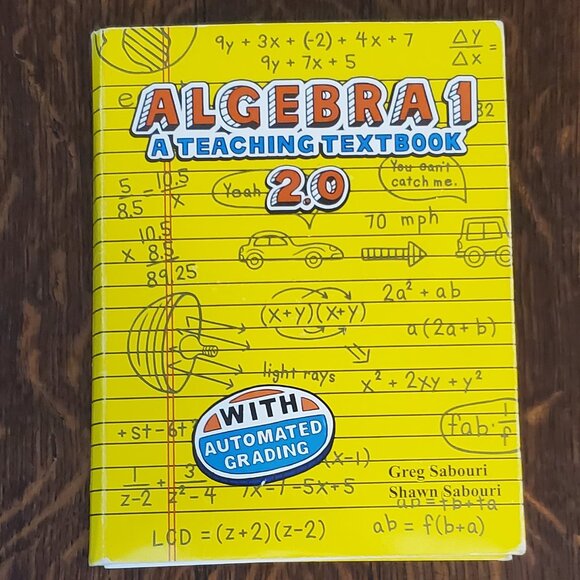 9y + 3x + (-2) + 4x + 7
9y + 7x + 5
Δy
Δx
=
ALGEBRA 1
A TEACHING TEXTBOOK
2.0
Yeah
You can't
catch me.
5
8.5
10.5
x
70 mph
10.5
x 8.5
8925
2a² + ab
(x+y)(x+y)
a(2a+b)
light rays
x² + 2xy + y²
WITH
AUTOMATED
GRADING
+st-6t
fab · 1
f
(x-1)
1
z-2
+
3
z²-4
7x-7-5x+5
Greg Sabouri
Shawn Sabouri
ab = fb+fa
LCD = (z+2)(z-2)
ab = f(b+a)